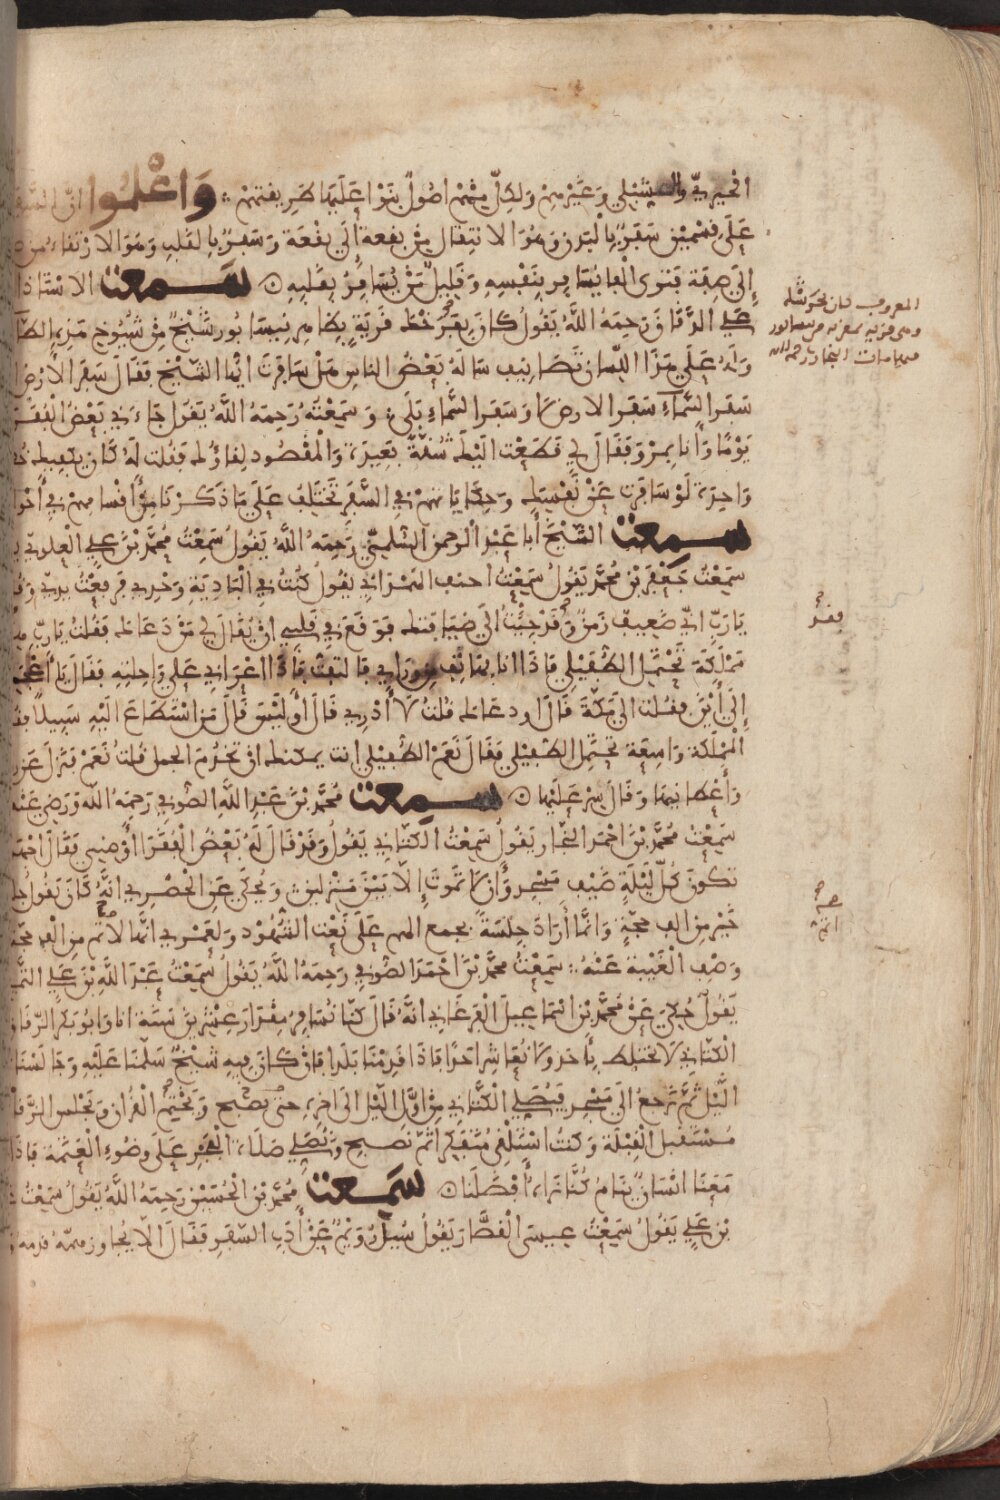 الحيري والشبلي وغيرهم ولكل منهم اصول بنوا عليها طريقتهم واعلموا ان السفر
على قسمين سفر بالبدن وهو الانتقال من بقعة الى بقعة وسفر بالقلب وهو الارتقاء من
الى صفة فترى الفا يسافر بنفسه وقليل من يسافر بقلبه سمعت الاستاذ ا
علي الدقاق رحمه الله يقول كان بفرخك قرية بظاهر نيسابور شيخ من شيوخ هذه الطا
وله على هذا اللسان تصانيف ساله بعض الناس هل سافرت ايها الشيخ فقال سفر الارض ا
سفر السماء سفر الارض لا وسفر السماء بلى وسمعته رحمه الله يقول جاءني بعض الفقر
يوما وانا بمرو فقال لي قطعت اليك شقة بعيدة والمقصود لقاؤك فقلت له كان يكفيك خ
واحدة لو سافرت عن نفسك وحكاياتهم في السفر تختلف على ما ذكرنا من اقسامهم في احوا
سمعت الشيخ أبا عبد الرحمن السلمي رحمه الله يقول سمعت محمد بن علي العلوي ي
سمعت جعفر بن محمد يقول سمعت احنف الهمداني يقول كنت في البادية وحدي فرفعت يدي وق
يا رب اني ضعيف زمن وقد جئت الى ضيافتك فوقع في قلبي ان يقال لي من دعاك فقلت يا رب هي
مملكة تحتمل الطفيلي فاذا انا بهاتف من ورائي فالتفت فاذا اعرابي على راحلته فقال يا اعجمي
إلى أين فقلت الى مكة قال او دعاك قلت لا أدري قال أوليس قال من استطاع اليه سبيلا فق
المملكة واسعة تحتمل الطفيلي فقال نعم الطفيلي انت يمكنك ان تخدم الجمل قلت نعم فنزل عن ر
وأعطانيها وقال سر عليها سمعت محمد بن عبد الله الصوفي رحمه الله ورضي عنه
سمعت محمد بن احمد النجار يقول سمعت الكتاني يقول وقد قال له بعض الفقراء أوصني فقال اجتهد
تكون كل ليلة ضيف مسجد وأن لا تموت إلا بين منزلين ويحكى عن الحصري انه كان يقول جل
خير من الف حجة وانما أراد جلسة تجمع الهم على نعت الشهود ولعمري انها لاتم من الف حجة
وصف الغيبة عنه سمعت محمد بن احمد الصوفي رحمه الله يقول سمعت عبد الله بن علي التم
يقول حكي عن محمد بن اسماعيل الفرغاني انه قال كنا نسافر مقدار عشرين سنة انا وابو بكر الزقاق
الكتاني لا نختلط باحد ولا نعاشر احدا فاذا قدمنا بلدا فان كان فيه شيخ سلمنا عليه وجالسنا
الليل ثم نرجع الى مسجد فيصلي الكتاني من اول الليل الى اخره حتى يصبح ويختم القران ويجلس الزقا
مستقبل القبلة وكنت استلقي متفكرا ثم نصبح ونصلي صلاة الفجر على وضوء العتمة فاذا
معنا انسان ينام كنا نراه أفضلنا سمعت محمد بن الحسين رحمه الله يقول سمعت
بن علي يقول سمعت عيسى القصار يقول سئل رويم عن أدب السفر فقال الا يجاوز همه قدمه و